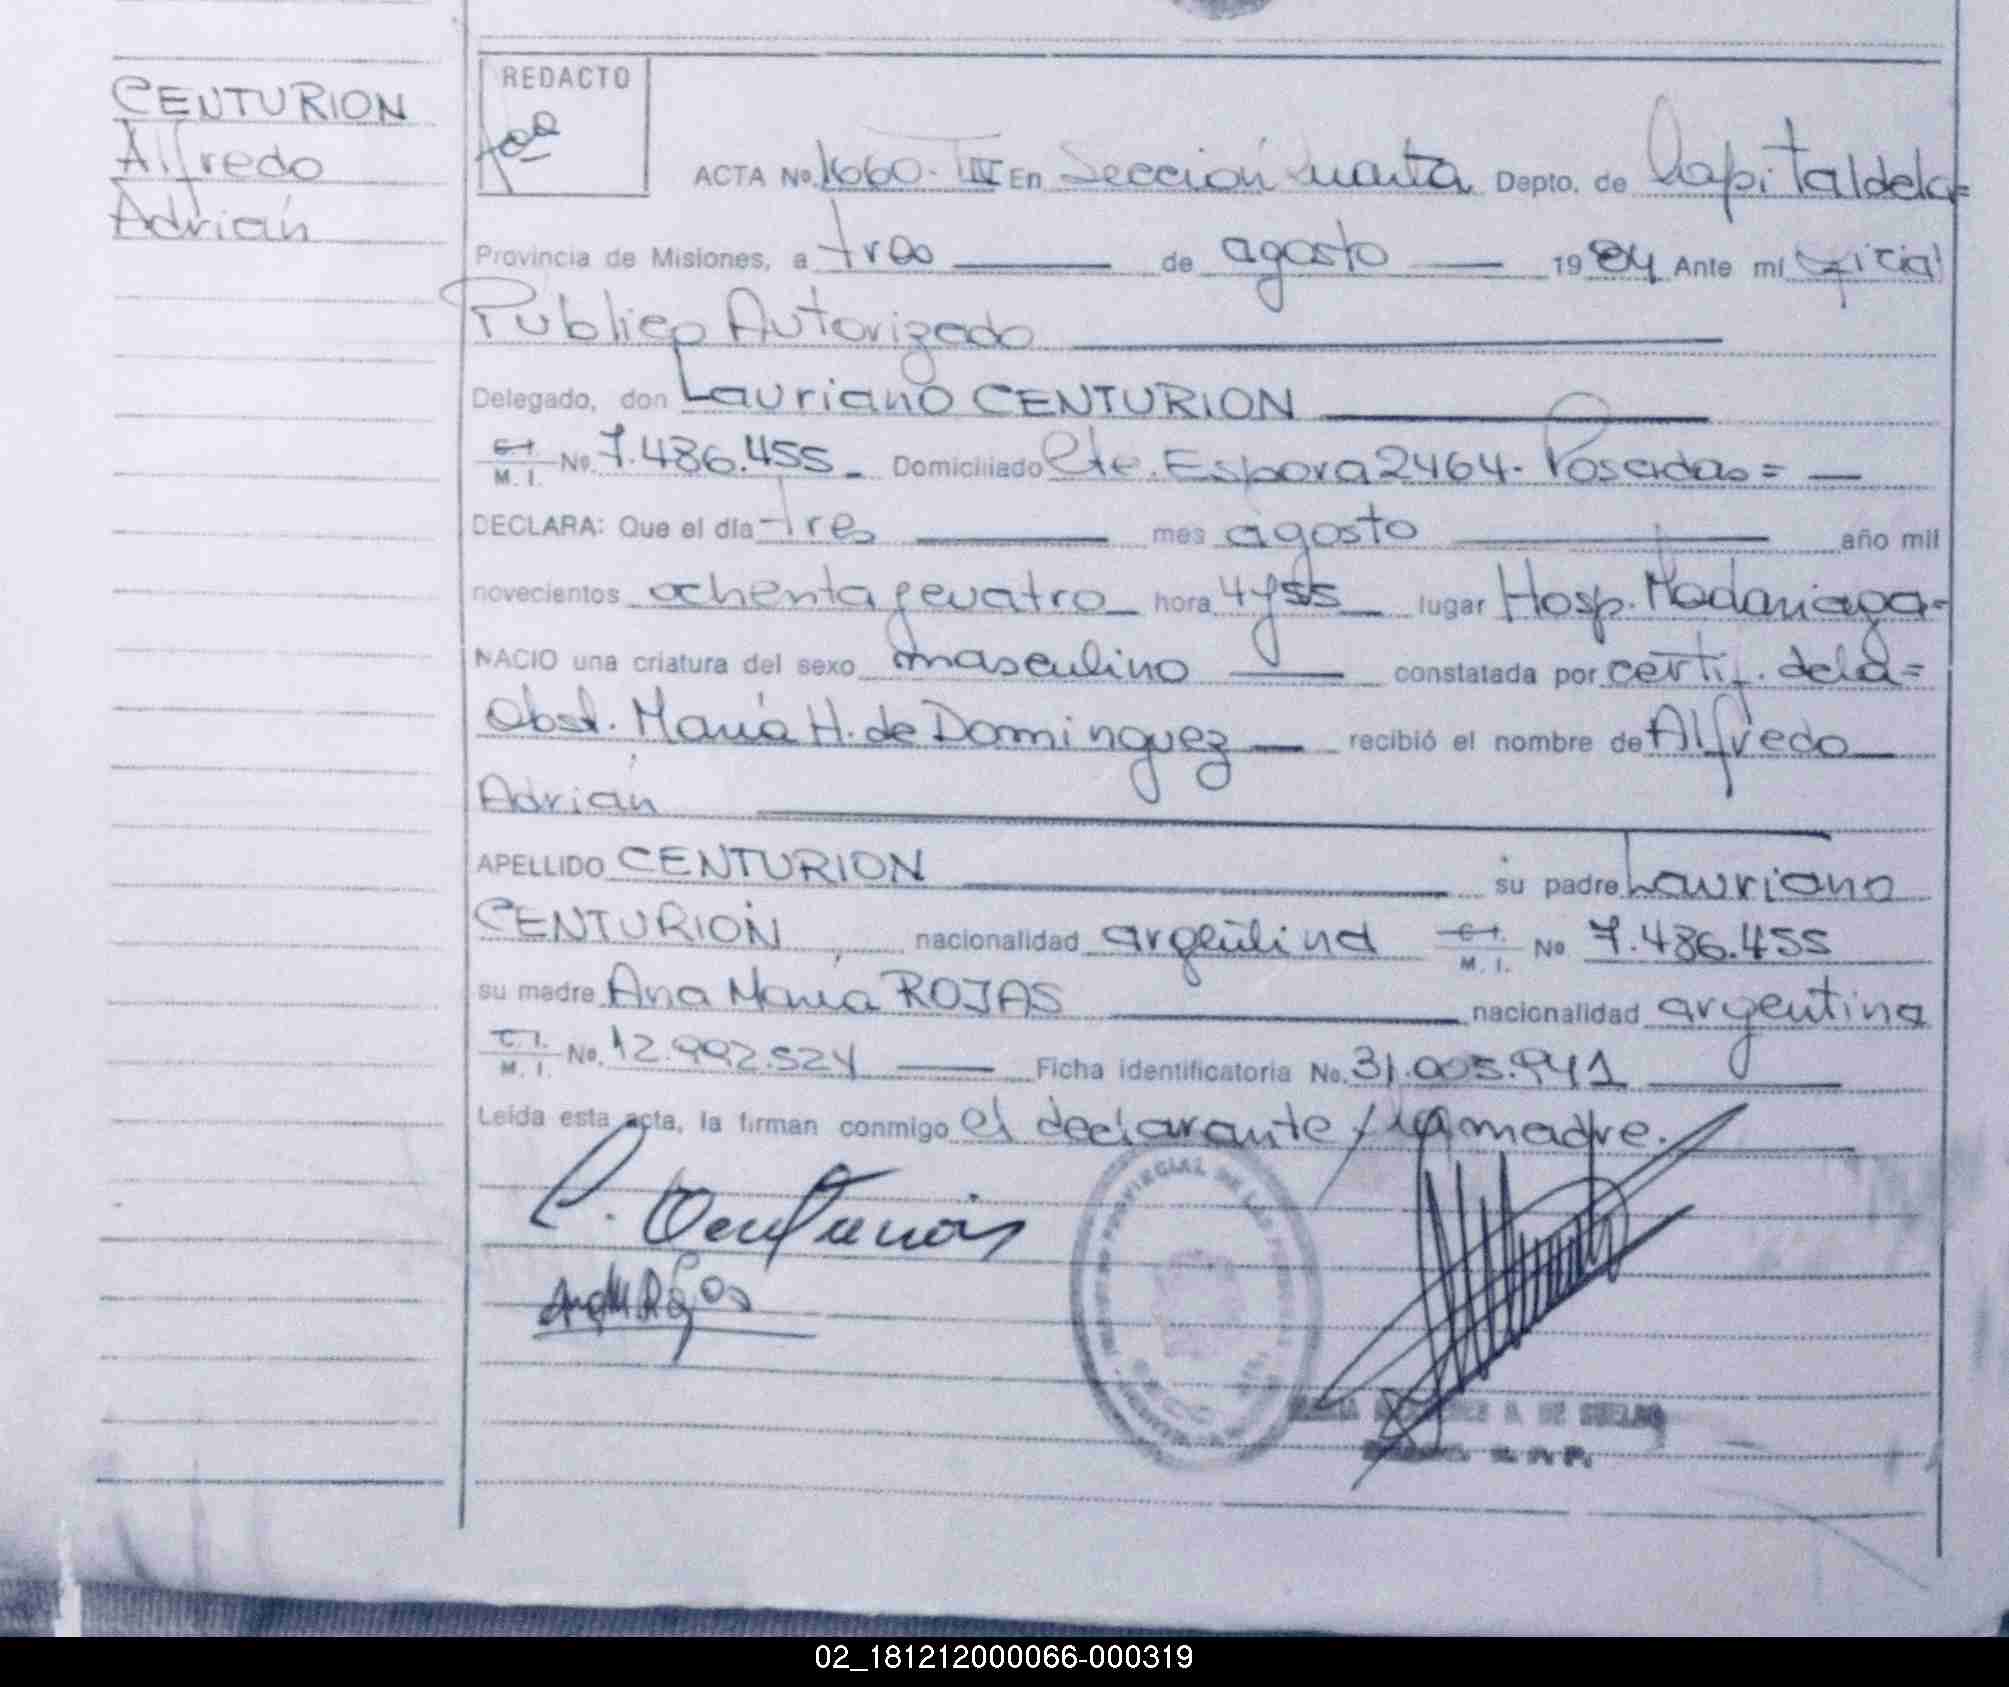 CENTURION
Alfredo
Adrián
REDACTO
ACTA No. 1660. III En Sección Cuarta Depto. de Capital de la=
Provincia de Misiones, a tres de agosto 1984 Ante mí Oficial
Publico Autorizado
Delegado, don Lauriano CENTURION
C.I. M.I. No. 7.486.455 Domiciliado Cte. Espora 2464. Posadas=
DECLARA: Que el día tres mes agosto año mil
novecientos ochenta y cuatro hora 4 y 55 lugar Hosp. Madariaga=
NACIO una criatura del sexo masculino constatada por certif. de la=
Obst. María H. de Dominguez recibió el nombre de Alfredo
Adrián
APELLIDO CENTURION su padre Lauriano
CENTURION, nacionalidad argentina C.I. M.I. No 7.486.455
su madre Ana María ROJAS nacionalidad argentina
C.I. M.I. No. 12.992.524 Ficha identificatoria No. 31.005.941
Leída esta acta, la firman conmigo el declarante y la madre.
L. Centurion
Ana M Rojas
PROVINCIAL DE LAS PERSONAS
02_181212000066-000319